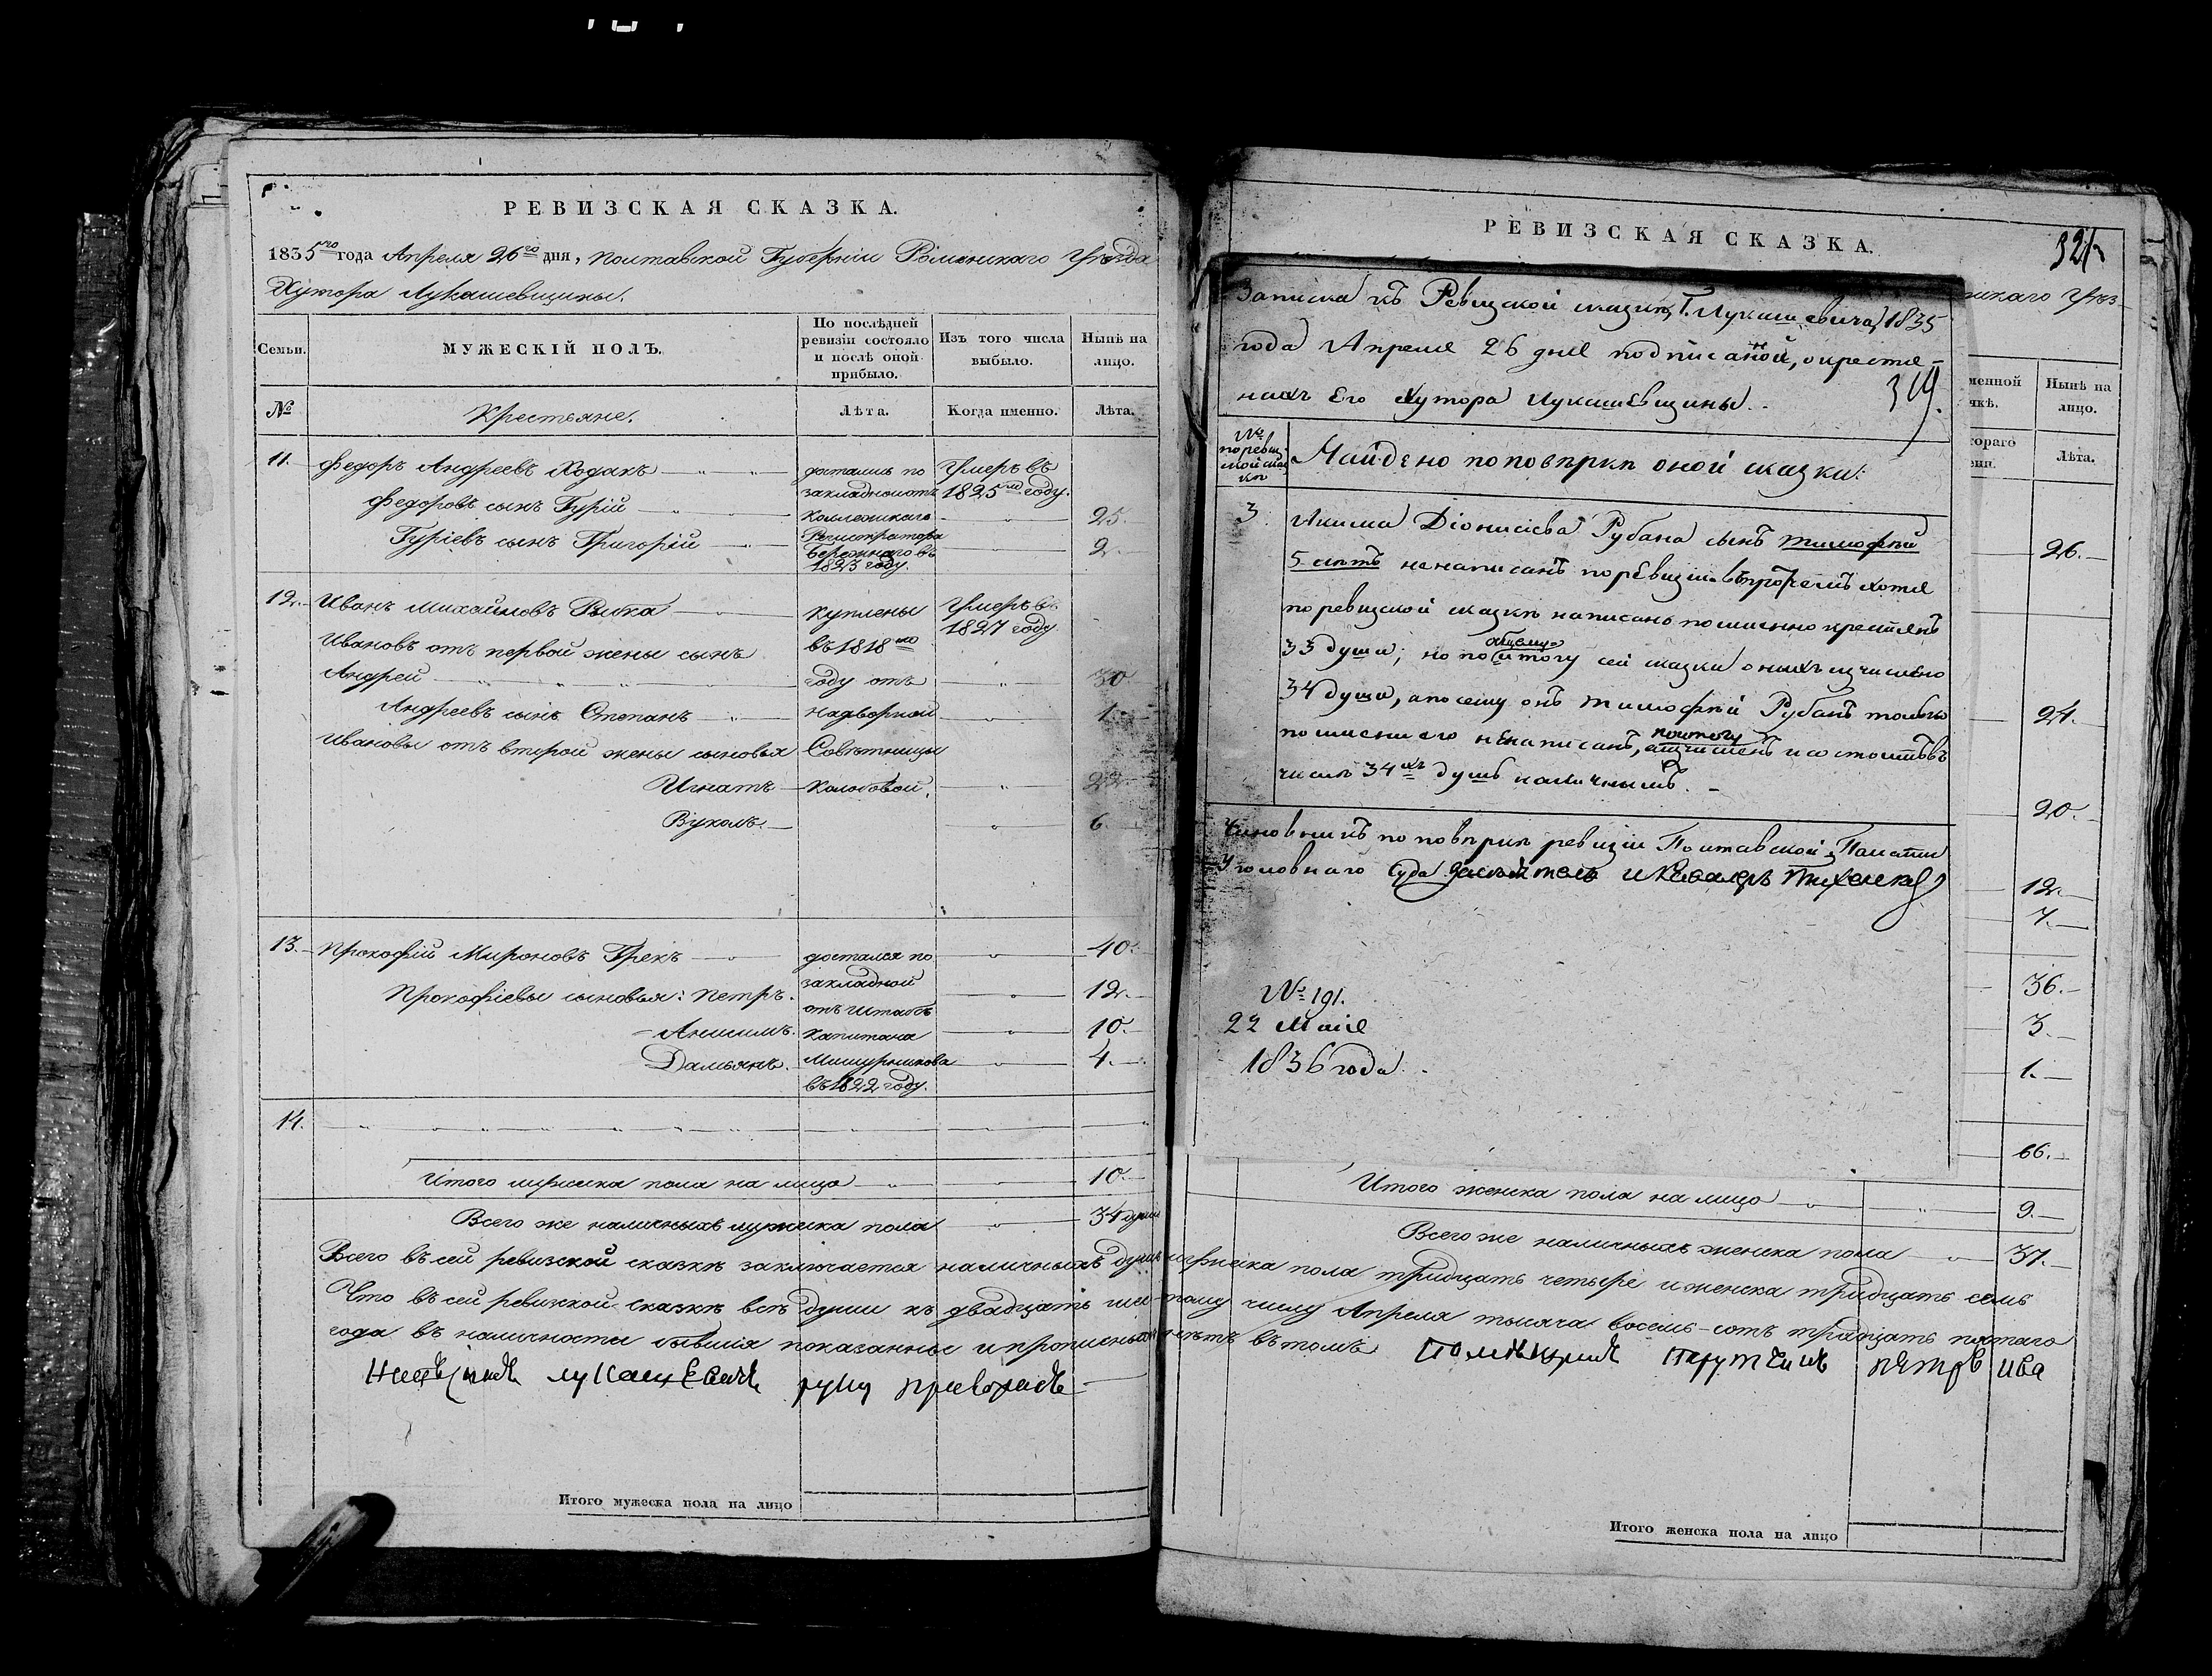 РЕВИЗСКАЯ СКАЗКА.
1835го года Апреля 26го дня, Полтавской Губерніи Роменскаго Уѣзда
Хутора Лукашевщины.
Семьи.
МУЖЕСКІЙ ПОЛЪ.
По послѣдней ревизіи состояло и послѣ оной прибыло.
Изъ того числа выбыло.
Нынѣ на лицо.
№
Крестьяне.
Лѣта.
Когда именно.
Лѣта.
11. Федоръ Андреевъ Ходакъ
достались по закладной отъ Коллежскаго Регистратора Бережнаго въ 1823 году.
Умеръ въ 1825мъ году.
Федоровъ сынъ Гурій 25.
Гуріевъ сынъ Григорій 2.
12. Иванъ Михайловъ
куплены въ 1818мъ году отъ надворной Совѣтницы Колобовой.
Умеръ въ 1827 году
Ивановъ отъ первой жены сынъ
Андрей 30
Андреевъ сынъ Степанъ 1.
Ивановы отъ второй жены сыновья
Игнатъ 22
Вуколъ. 6.
13. Прокофій Мироновъ Грекъ 40.
достался по закладной отъ Штабсъ Капитана въ 1822 году.
Прокофіевы сыновья: Петръ. 12.
Анисимъ. 10.
Дамьянъ. 4.
14.
Итого мужеска пола на лицо 10.
Всего же наличныхъ мужеска пола 34 души
Всего въ сей ревизской сказкѣ заключается наличныхъ душъ мужеска пола тридцать четыре и женска тридцать семь
Что въ сей ревизской сказкѣ всѣ души къ двадцать шестому числу Апреля тысяча восемь-сотъ тридцать пятаго
года въ наличности бывшія показанны и прописныхъ нѣтъ въ томъ Помѣщикъ Порутчикъ Петръ Ива
Лукашевичъ руку приложилъ
Итого мужеска пола на лицо
РЕВИЗСКАЯ СКАЗКА.
321
Записка къ Ревизской сказкѣ Г. Лукашевича, 1835
года Апреля 26 дня подписаной, о крестья-
нахъ Его Хутора Лукашевщины.
319.
№ по ревизской сказкѣ
Найдено по повѣркѣ оной сказки:
3. Акима Діонисіева Рубана сынъ Тимофѣй
5 лѣтъ не написанъ по ревизіи въпротчемъ хотя
по ревизской сказкѣ написано поименно крестьянъ
33 души; но по общему итогу сей сказки о нихъ изчислено
34 души, а по сему онъ Тимофѣй Рубанъ только
по имени его не написанъ, по итогу и состоитъ въ
числѣ 34хъ душъ наличнымъ.
Чиновникъ по повѣркѣ ревизіи Полтавской Палаты
Уголовнаго Суда Засѣдатель и Кавалеръ
№ 191.
22 Мая
1836 года.
Нынѣ на лицо.
Лѣта.
26.
24.
20.
12.
7.
36.
3.
1.
66.
Итого женска пола на лицо 9.
Всего же наличныхъ женска пола 37.
Итого женска пола на лицо